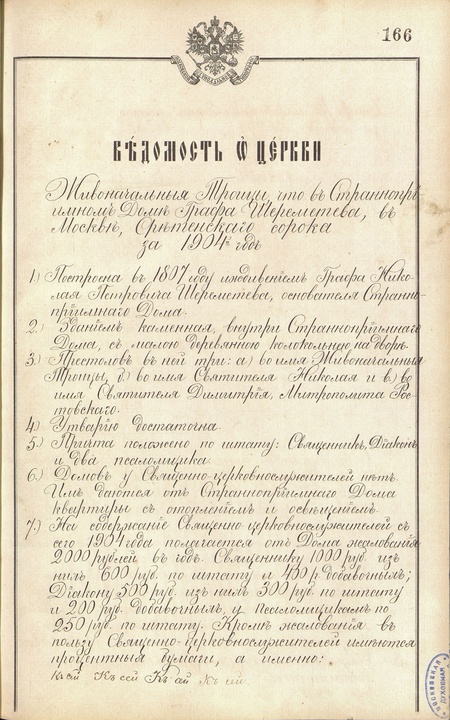 166
ВѢДОМОСТЬ Ѡ ЦЕРКВИ
Живоначальныя Троицы, что въ Страннопрі-
имномъ Домѣ Графа Шереметева, въ
Москвѣ, Срѣтенскаго сорока
за 1904й годъ
1.) Построена въ 1807 году иждивеніемъ Графа Нико-
лая Петровича Шереметева, основателя Странно-
пріимнаго Дома.
2.) Зданіемъ каменная, внутри Страннопріимнаго
Дома, съ малою деревянною колокольнею на дворѣ.
3.) Престоловъ въ ней три: а) во имя Живоначальныя
Троицы, б) во имя Святителя Николая и в) во
имя Святителя Димитрія, Митрополита Рос-
товскаго.
4.) Утварію достаточна.
5.) Причта положено по штату: Священникъ, Діаконъ
и два псаломщика.
6.) Домовъ у Священно-церковнослужителей нѣтъ.
Имъ даются отъ Страннопріимнаго Дома
квартиры съ отопленіемъ и освѣщеніемъ.
7.) На содержаніе Священно церковнослужителей съ
сего 1904 года полагается отъ Дома жалованія
2000 рублей въ годъ. Священнику 1000 руб. изъ
нихъ 600 руб. по штату и 400 р. добавочныхъ;
Діакону 500 руб. изъ нихъ 300 руб. по штату
и 200 руб. добавочныхъ, и псаломщикамъ по
250 руб. по штату. Кромѣ жалованія въ
пользу Священно-церковнослужителей имѣются
процентныя бумаги, а именно: